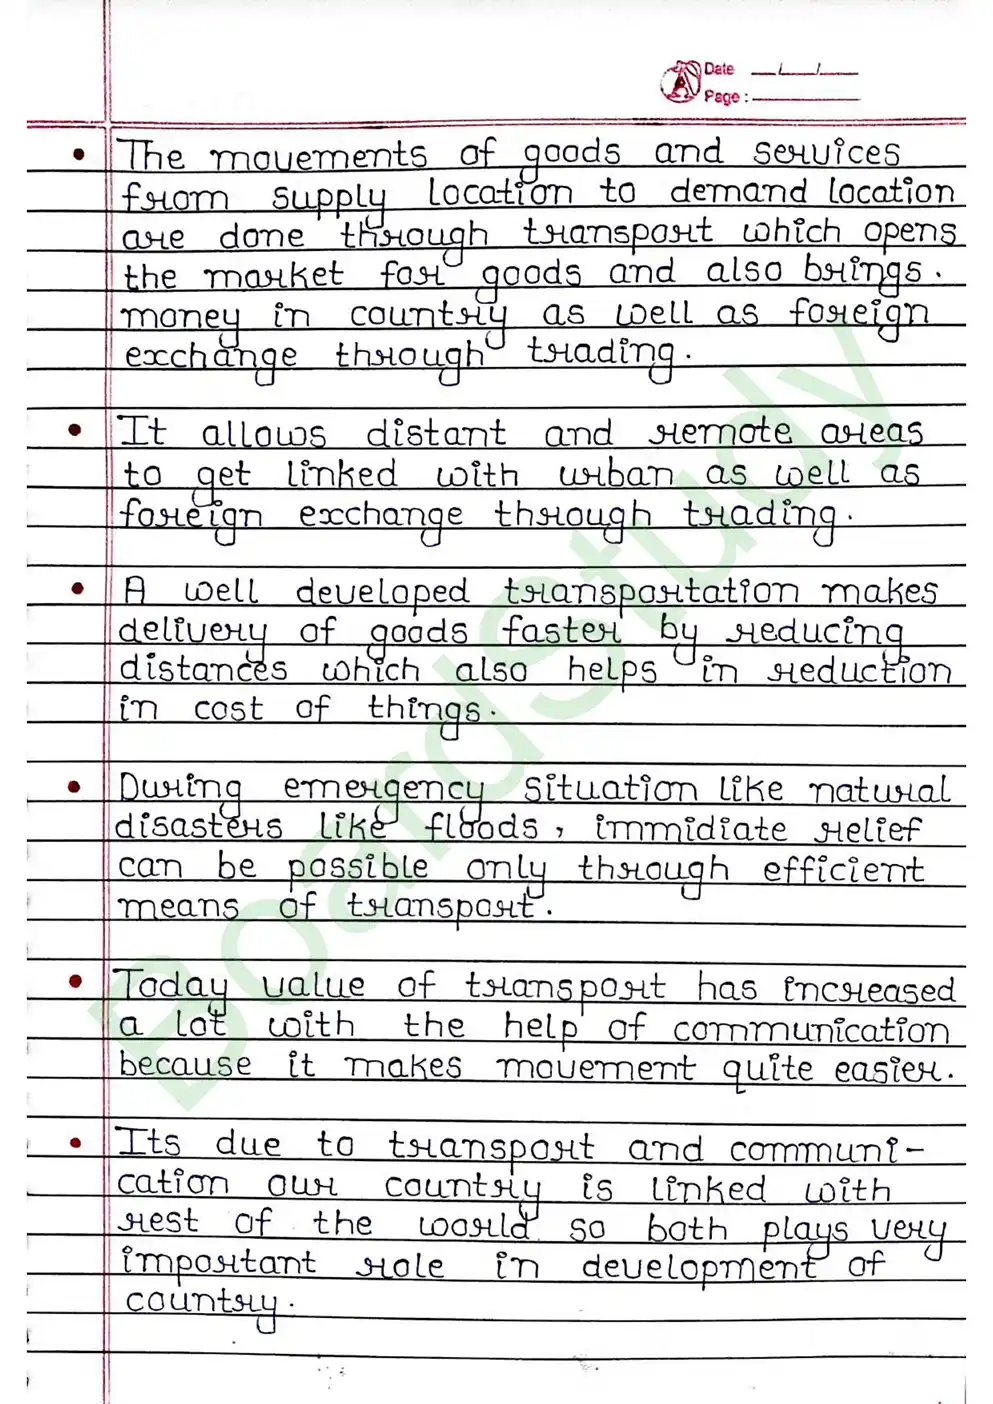 Date __/__/__
Page : ________
• The movements of goods and services
from supply location to demand location
are done through transport which opens
the market for goods and also brings.
money in country as well as foreign
exchange through trading.
• It allows distant and remote areas
to get linked with urban as well as
foreign exchange through trading.
• A well developed transportation makes
delivery of goods faster by reducing
distances which also helps in reduction
in cost of things.
• During emergency situation like natural
disasters like floods, immidiate relief
can be possible only through efficient
means of transport.
• Today value of transport has increased
a lot with the help of communication
because it makes movement quite easier.
• Its due to transport and communi-
cation our country is linked with
rest of the world so both plays very
important role in development of
country.
BoardStudy